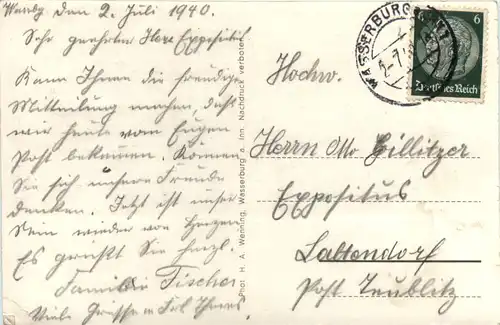 Wassbg. den 2. Juli 1940.
Sehr geehrter Herr Expositus!
Kann Ihnen die freudige
Mitteilung machen, daß
wir heute vom Eugen
Post bekamen. Können
Sie sich unsere Freude
denken. Jetzt ist unser
wieder von Herzen
Es grüßt Sie herzl.
Familie Fischer
Viele Grüsse
Phot. H. A. Wenning, Wasserburg a. Inn. Nachdruck verboten
WASSERBURG
6 6
Deutsches Reich
Hochw.
Herrn Otto Gillitzer
Expositus
Lattendorf
Post Teublitz